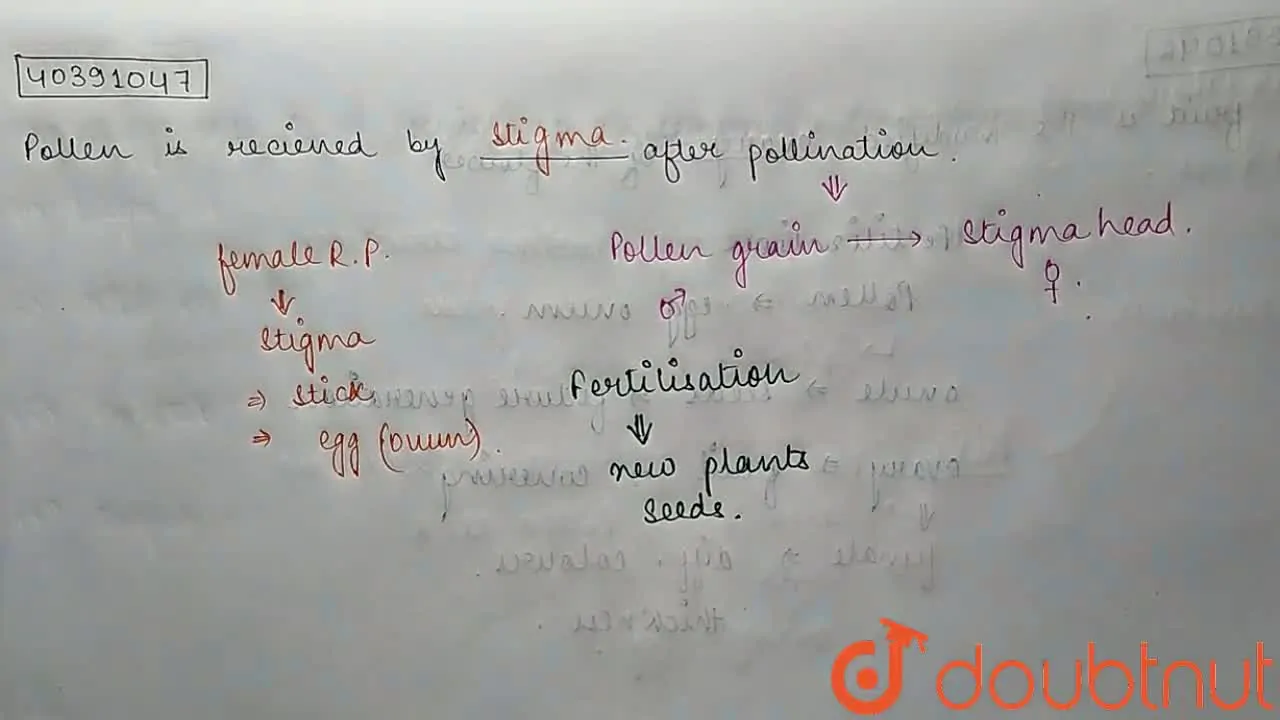 40391047
Pollen is reciened by stigma. after pollination.
female R.P.
stigma
⇒ stick
⇒ egg (ovum).
Pollen grain → stigma head.
♂ ♀.
fertilisation
new plants
seeds.
doubtnut